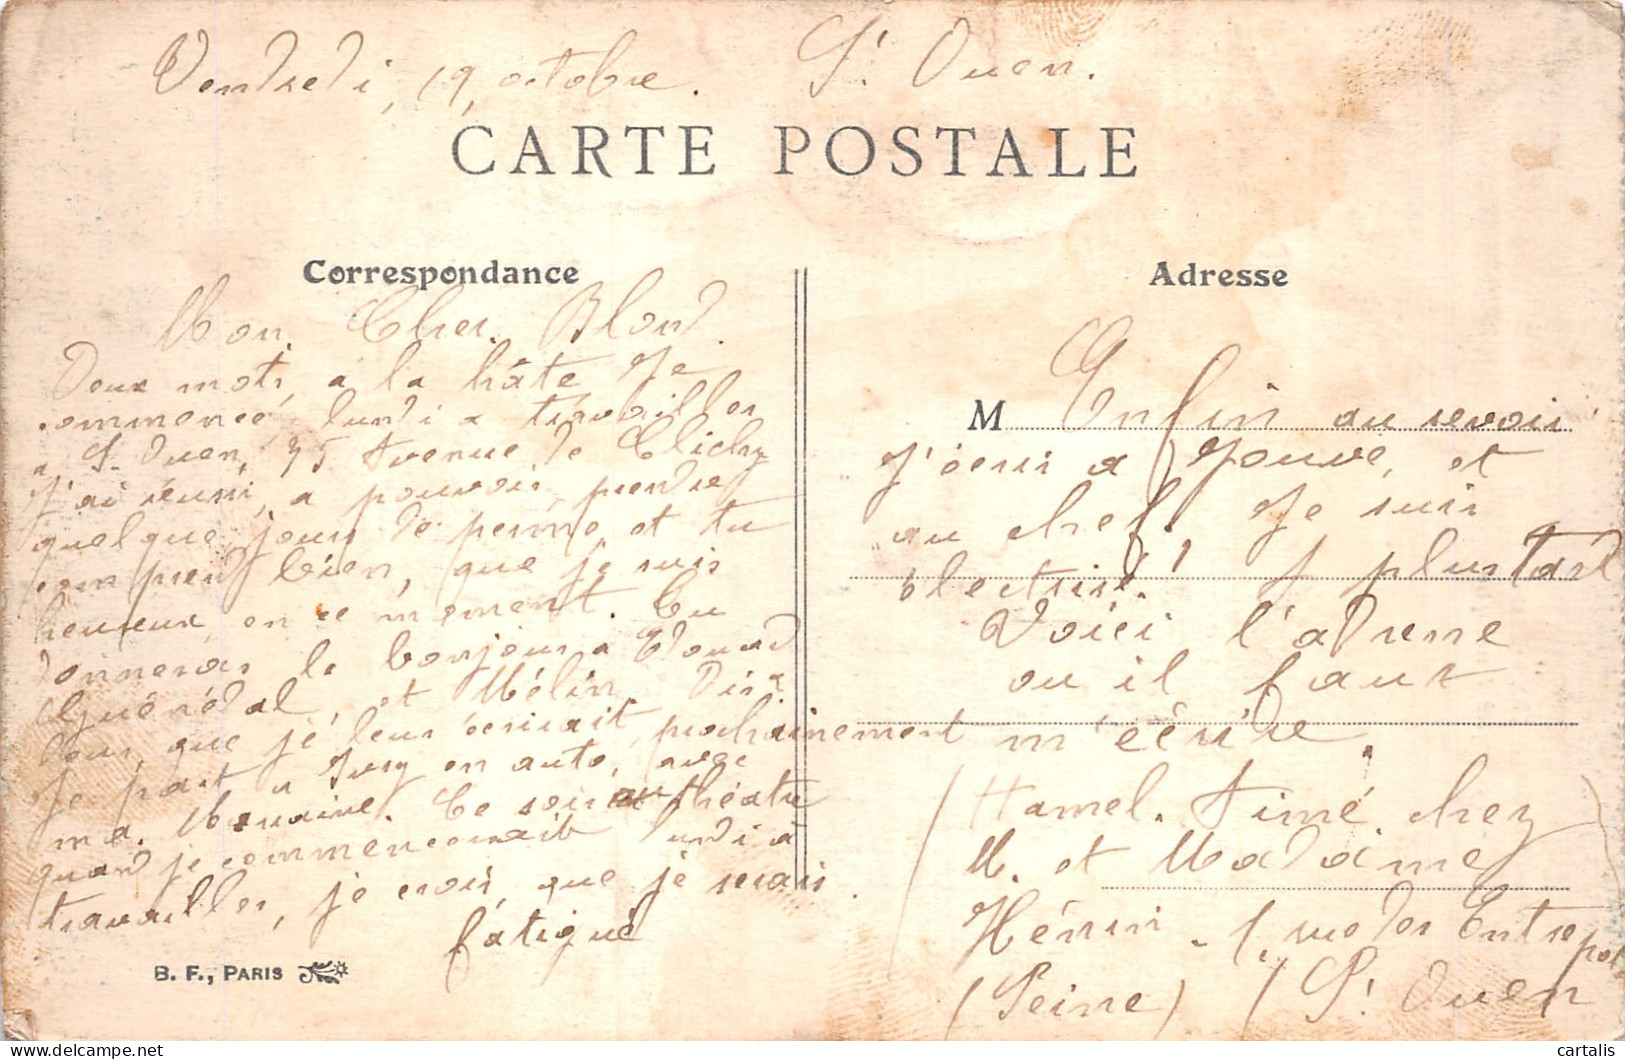 Vendredi, 19, octobre. St Ouen.
CARTE POSTALE
Correspondance
Mon. Cher. Blond.
Deux mots, a la hâte, Je
commence, lundi a travailler
a St Ouen, 35 Avenue de Clichy
J'ai réussi, a pouvoir, prendre
quelque jours de perme, et tu
comprend bien, que je suis
heureux, en ce moment. Tu
donneras le bonjour a Edouard
et Mélin, Dis a
tous, que je leur écrirait, prochainement
Je part a en auto, avec
ma. Marraine. Ce soir au théatre
quand je commencerait lundi à
travailler, je crois, que je serais
fatigué
B. F., PARIS
Adresse
M Enfin au revoir
J'écris a Jouve, et
au chef. Je suis
électrisé! plus tard
Voici l'adresse
ou il faut
m'écrire.
(Hamel. Aimé. chez
M. et Madame
Hénin - 1, rue des Entrepot
(Seine) (St Ouen
cartalis